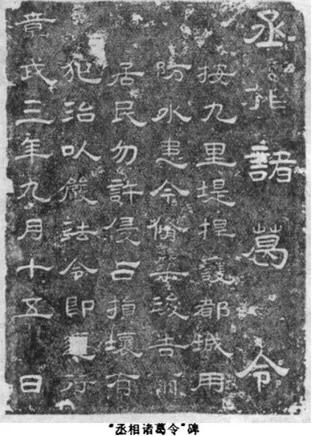 丞相諸葛令
按九里堤捍護都城用
防水患今脩築竣告爾
居民勿許侵占損壞有
犯治以嚴法令即遵行
章武三年九月十五日
“丞相诸葛令”碑